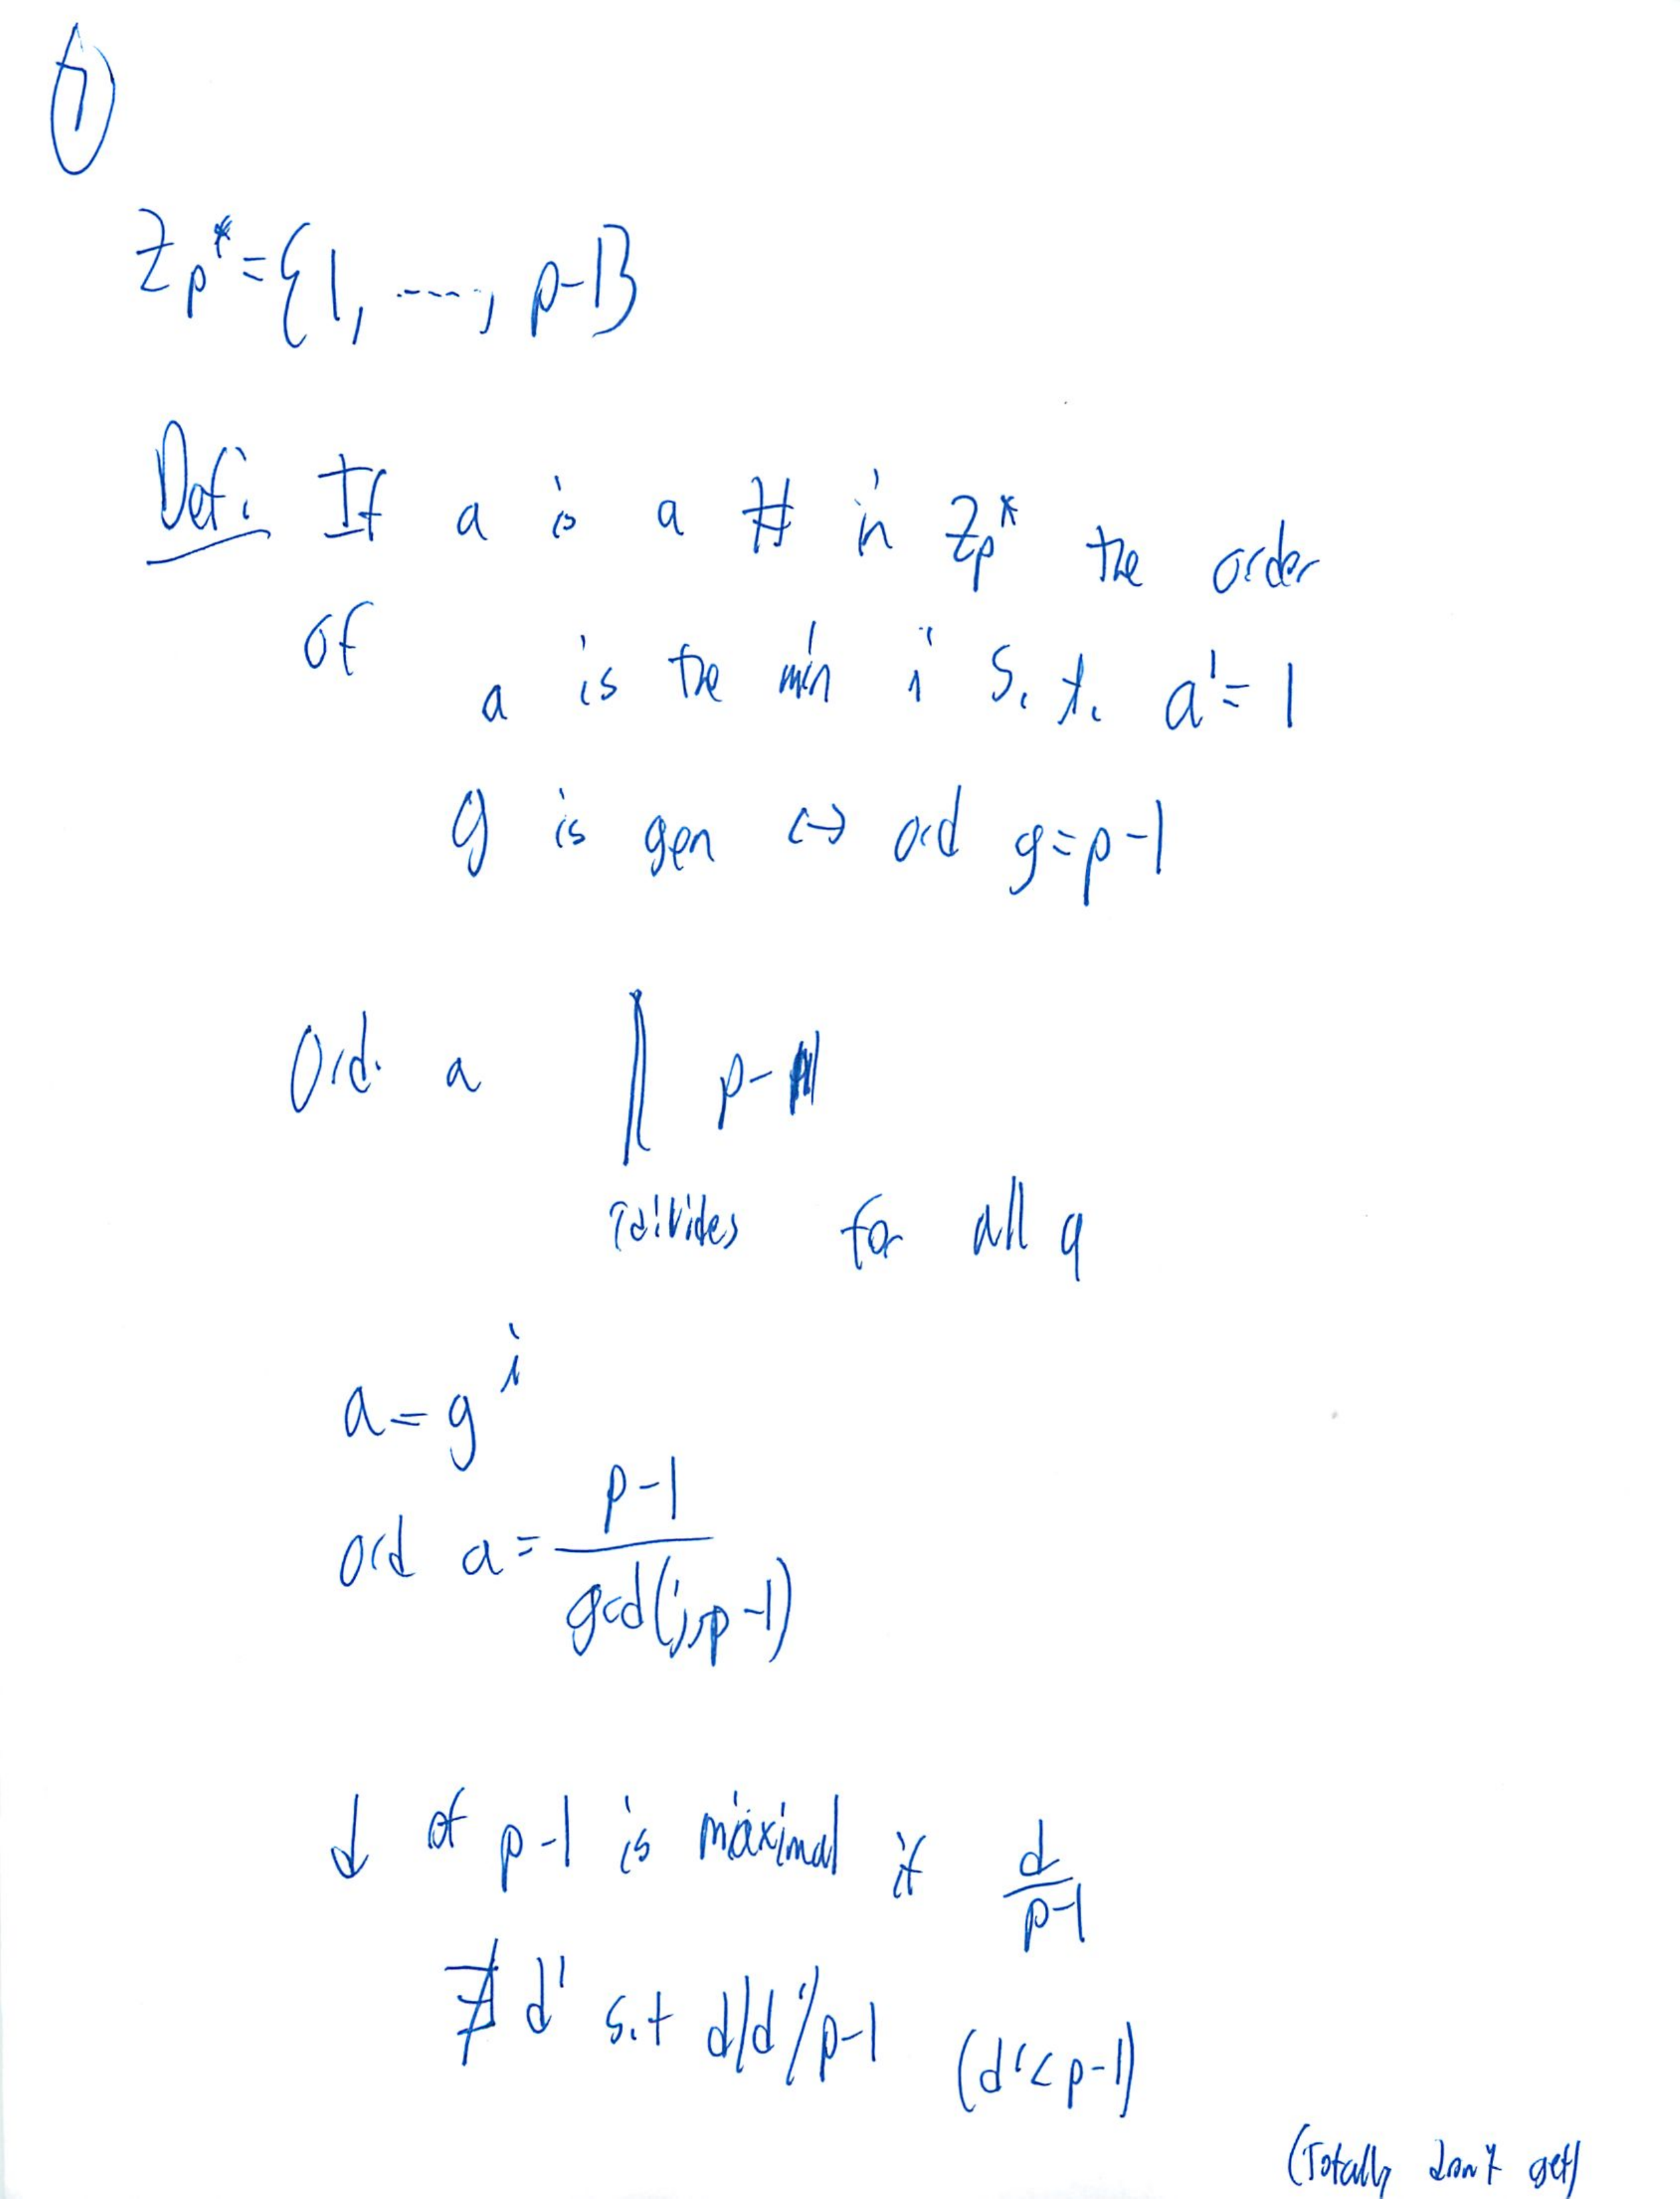 ①
Zp* = {1, ----, p-1}
Def: If a is a # in Zp* the order
of a is the min i s.t. a^i = 1
g is gen ↔ ord g = p-1
Ord. a | p-1
↑divides for all a
a = g^i
ord a = (p-1) / gcd(i, p-1)
d of p-1 is maximal if d/p-1
∄ d' s.t d/d'/p-1 (d' < p-1)
(Totally don't get)